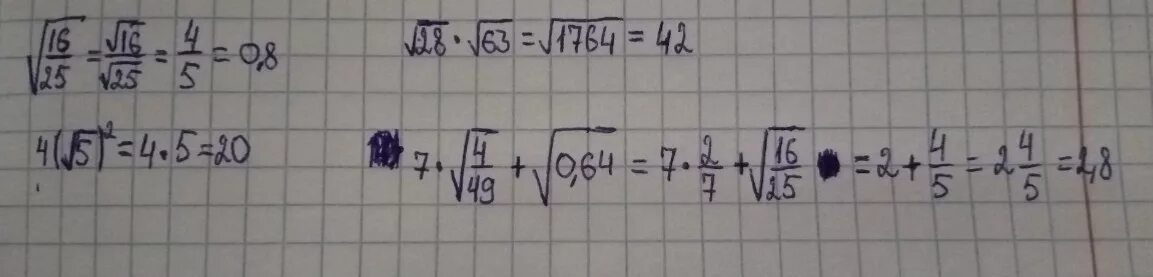 √(16/25) = √16/√25 = 4/5 = 0,8
√28 · √63 = √1764 = 42
4(√5)² = 4 · 5 = 20
7 · √(4/49) + √0,64 = 7 · 2/7 + √(16/25) = 2 + 4/5 = 2 4/5 = 2,8